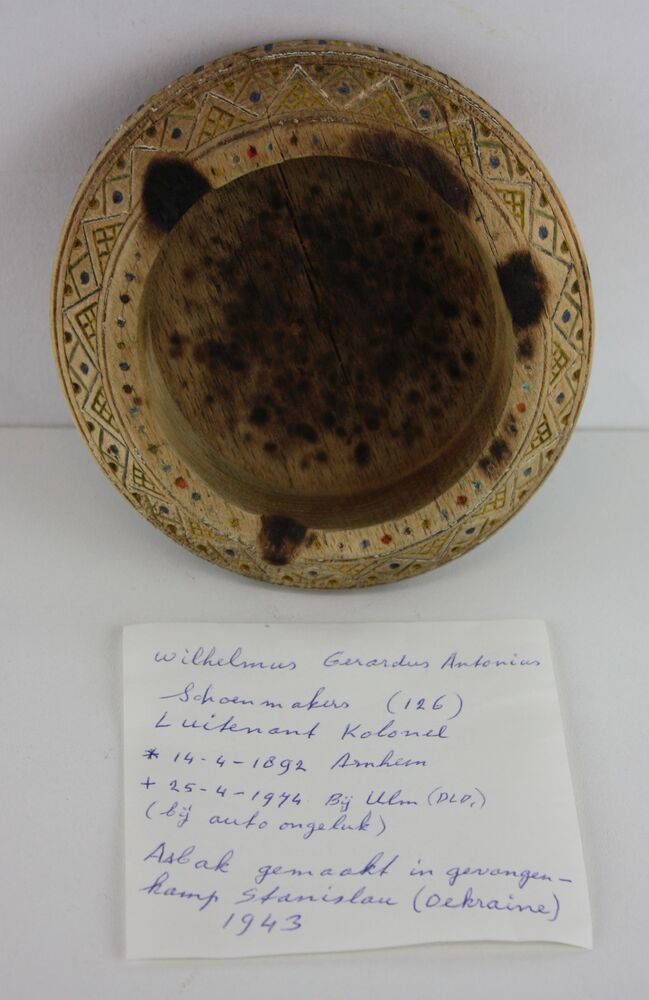 Wilhelmus Gerardus Antonius
Schoenmakers (126)
Luitenant Kolonel
* 14-4-1892 Arnhem
+ 25-4-1974 Bij Ulm (DLD,)
(bij auto ongeluk)
Asbak gemaakt in gevangen-
kamp Stanislau (Oekraine)
1943